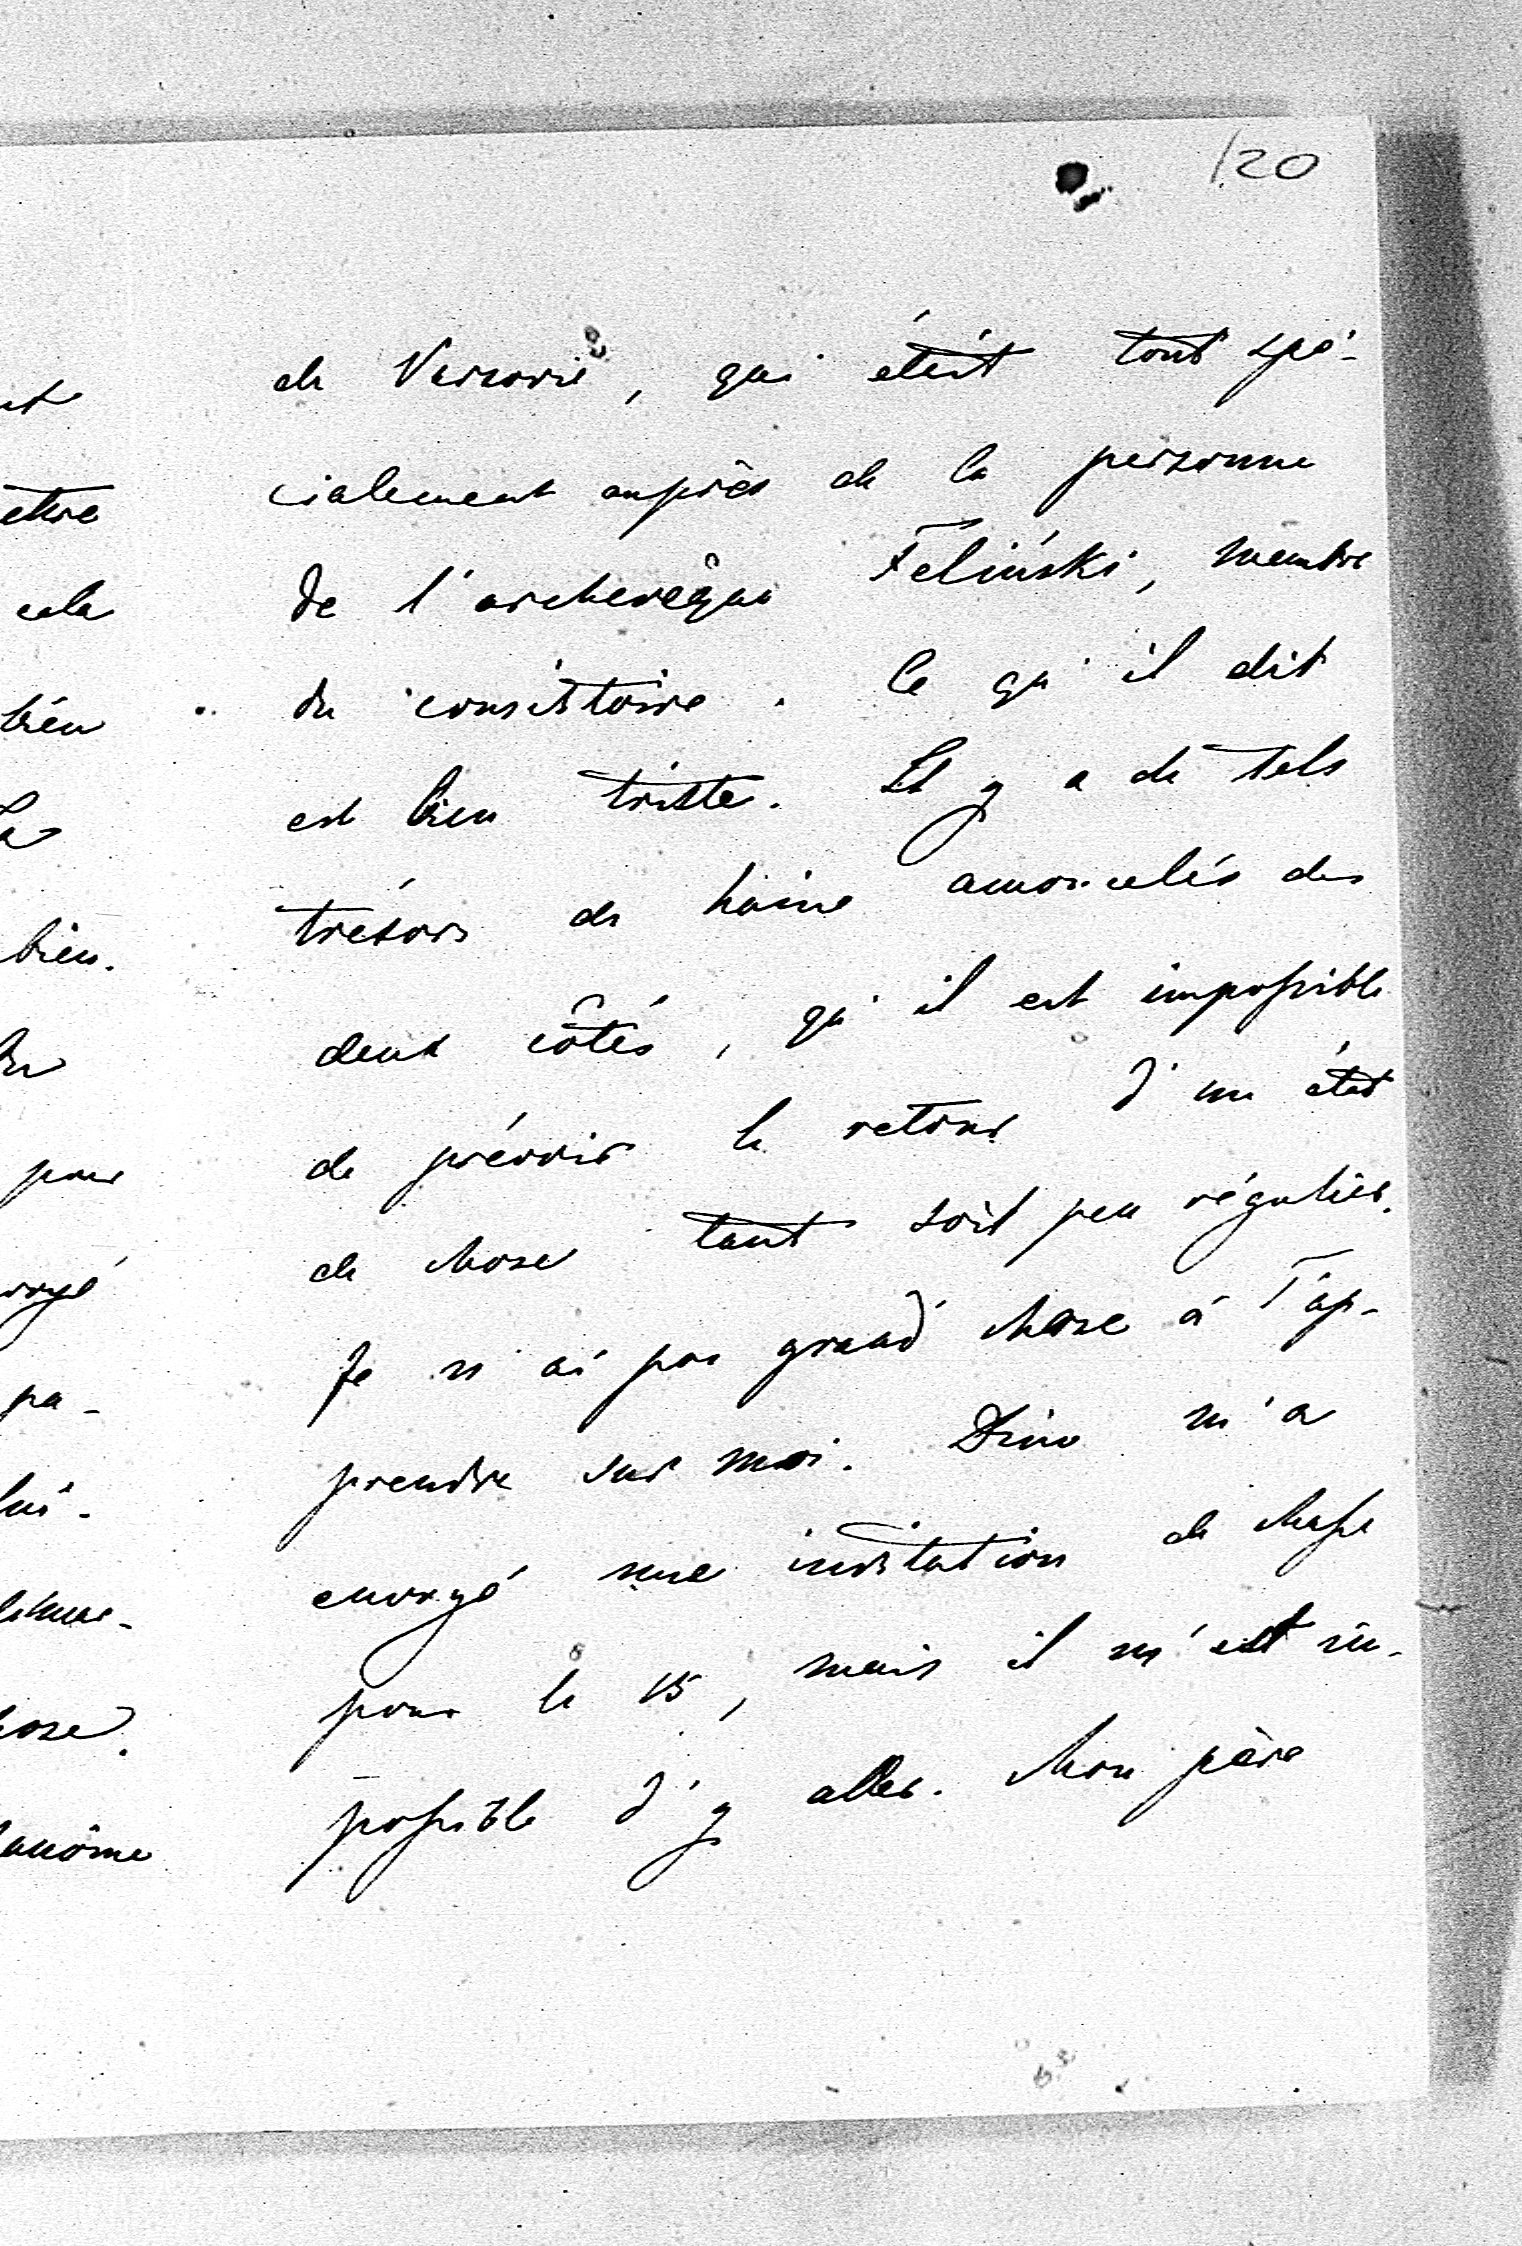 120
de Varsovie, qui était tout spé-
cialement auprès de la personne
de l'archevêque Feliński, membre
du consistoire. Ce qu'il dit
est bien triste. Il y a de tels
trésors de haine amoncelés des
deux côtés, qu'il est impossible
de prévoir le retour d'un état
de chose tant soit peu régulier.
Je n'ai pas grand chose à t'ap-
prendre sur moi. Dino m'a
envoyé une invitation de chasse
pour le 15, mais il m'est im-
possible d'y aller. Mon père
cela
bien
La
bien.
pour
pa-